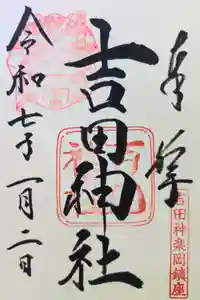 奉拝
吉田神楽岡鎮座
吉田神社
令和七年一月二日